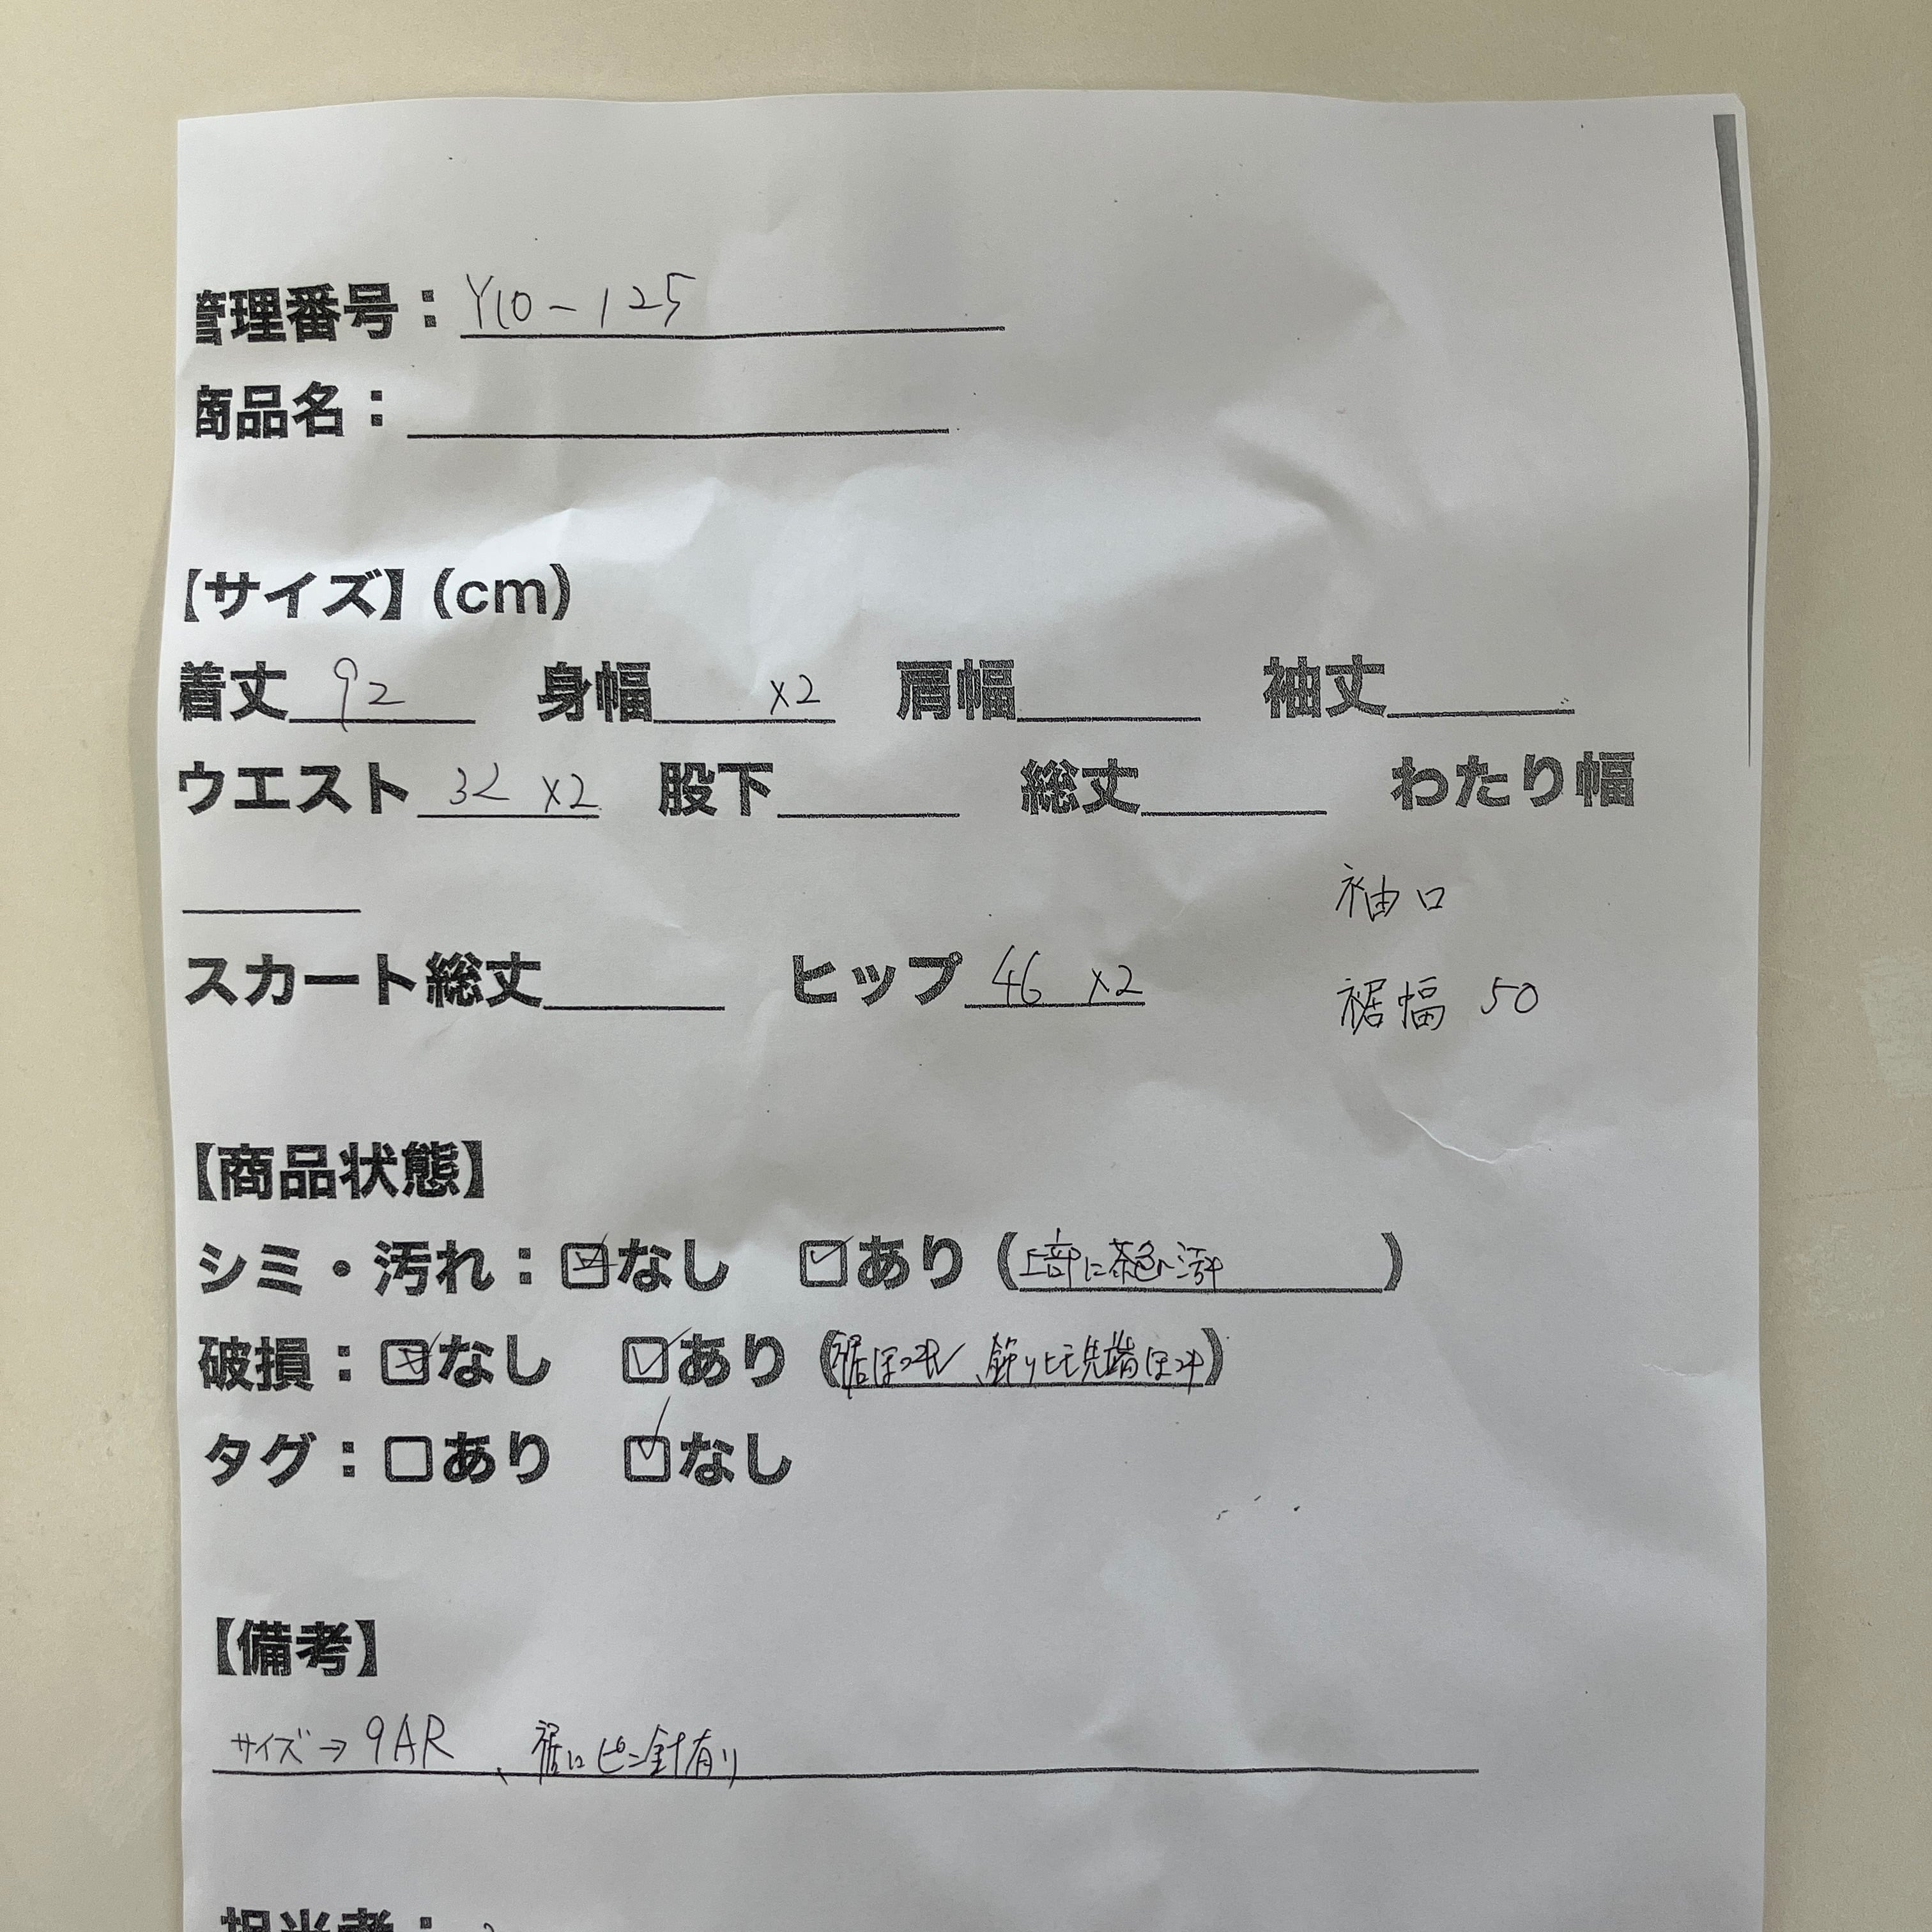 管理番号：Y10-125
商品名：
【サイズ】(cm)
着丈 92 身幅 ×2 肩幅 袖丈
ウエスト 32 ×2 股下 総丈 わたり幅
袖口
スカート総丈 ヒップ 46 ×2
裾幅 50
【商品状態】
シミ・汚れ：☑なし ☑あり（上部に茶色い汚れ）
破損：☑なし ☑あり（裾ほつれ、飾りヒモ先端ほつれ）
タグ：□あり ☑なし
【備考】
サイズ→9AR、裾にピン針有り
担当者：